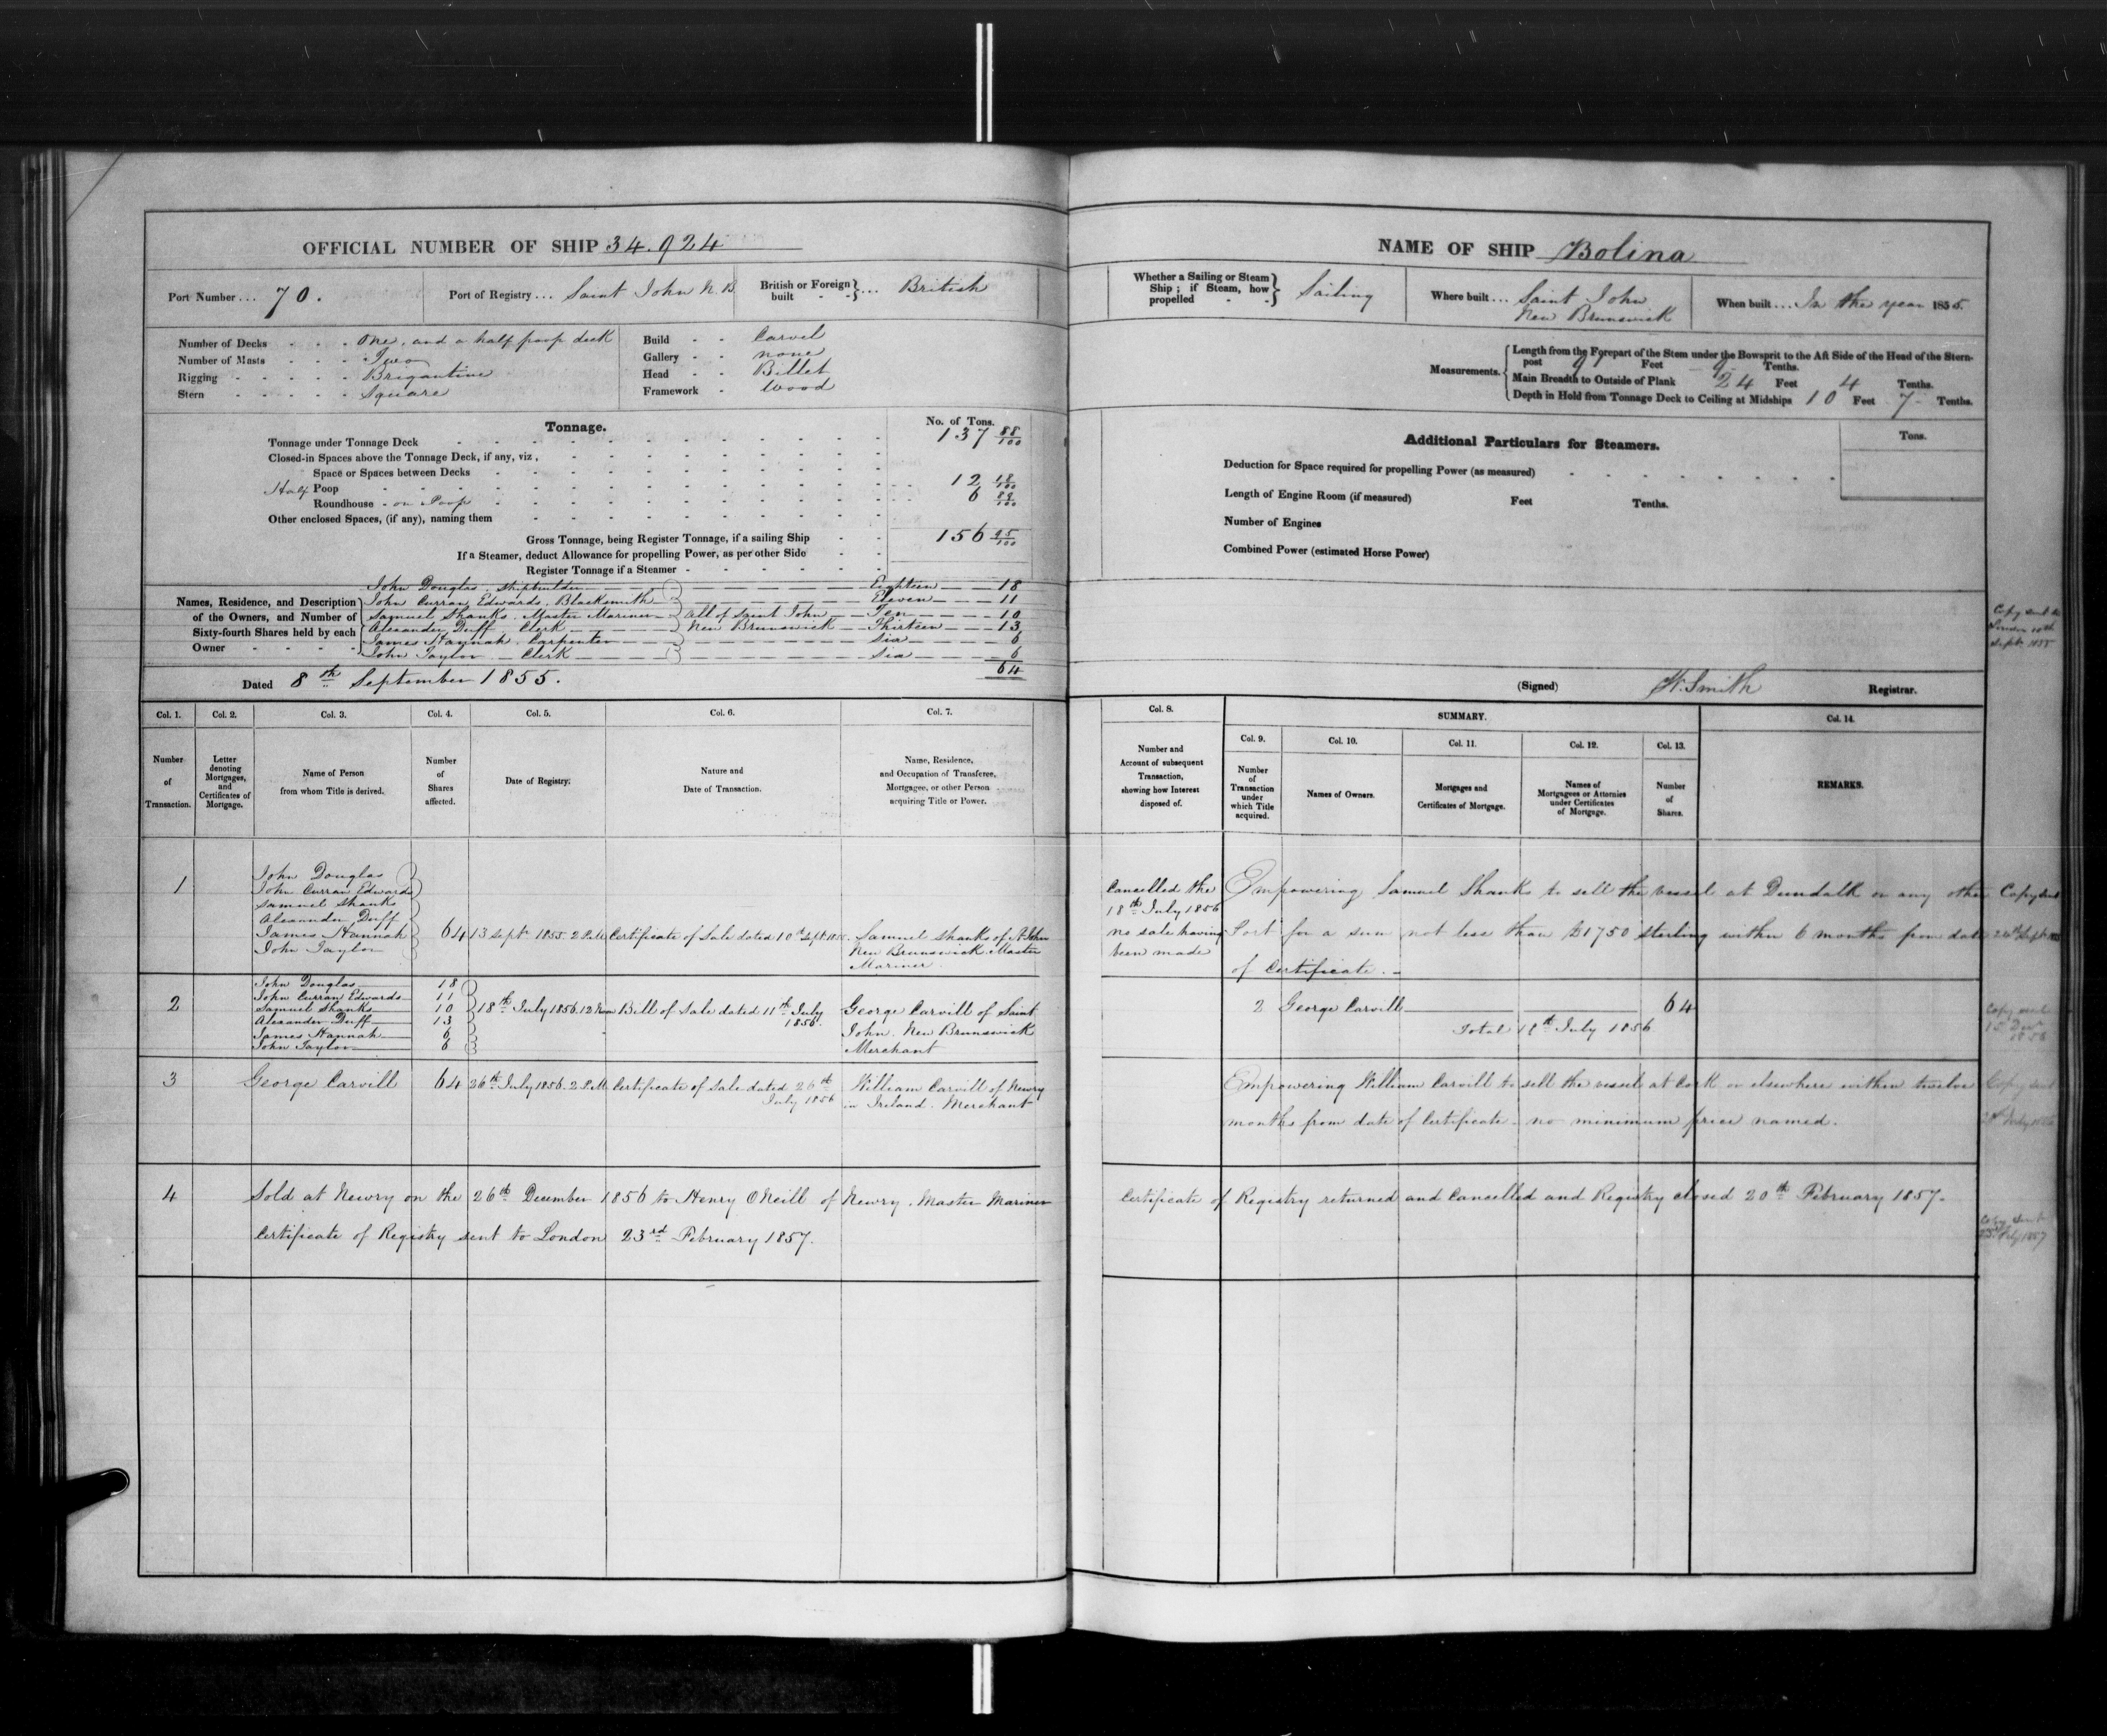 OFFICIAL NUMBER OF SHIP 34.924
Port Number ... 70.
Port of Registry ... Saint John N.B.
British or Foreign built ... British
Number of Decks - - - One, and a half poop deck
Number of Masts - - - Two
Rigging - - - - - Brigantine
Stern - - - - - Square
Build - - Carvel
Gallery - - none
Head - - Billet
Framework - Wood
Tonnage.
No. of Tons.
Tonnage under Tonnage Deck 137 88/100
Closed-in Spaces above the Tonnage Deck, if any, viz,
Space or Spaces between Decks
Half Poop 12 18/100
Roundhouse - on Poop 6 89/100
Other enclosed Spaces, (if any), naming them
Gross Tonnage, being Register Tonnage, if a sailing Ship 156 95/100
If a Steamer, deduct Allowance for propelling Power, as per other Side
Register Tonnage if a Steamer
Names, Residence, and Description of the Owners, and Number of Sixty-fourth Shares held by each Owner
John Douglas, Shipbuilder Eighteen 18
John Curran Edwards, Blacksmith Eleven 11
Samuel Shanks, Master Mariner All of Saint John Ten 10
Alexander Duff, Clerk New Brunswick Thirteen 13
James Hannah, Carpenter Six 6
John Taylor - Clerk Six 6
64
Dated 8th September 1855.
NAME OF SHIP Bolina
Whether a Sailing or Steam Ship; if Steam, how propelled Sailing
Where built ... Saint John New Brunswick
When built ... In the year 1855.
Measurements.
Length from the Forepart of the Stem under the Bowsprit to the Aft Side of the Head of the Stern-
post 97 Feet 9 Tenths.
Main Breadth to Outside of Plank 24 Feet 4 Tenths.
Depth in Hold from Tonnage Deck to Ceiling at Midships 10 Feet 7 Tenths.
Additional Particulars for Steamers.
Tons.
Deduction for Space required for propelling Power (as measured)
Length of Engine Room (if measured) Feet Tenths.
Number of Engines
Combined Power (estimated Horse Power)
Copy sent to
London 10th
Sept 1855
(Signed) W. Smith Registrar.
Col. 1. Col. 2. Col. 3. Col. 4. Col. 5. Col. 6. Col. 7.
Number of Transaction.
Letter denoting Mortgages, and Certificates of Mortgage.
Name of Person from whom Title is derived.
Number of Shares affected.
Date of Registry.
Nature and Date of Transaction.
Name, Residence, and Occupation of Transferee, Mortgagee, or other Person acquiring Title or Power.
Col. 8.
Number and Account of subsequent Transaction, showing how Interest disposed of.
SUMMARY.
Col. 9. Col. 10. Col. 11. Col. 12. Col. 13. Col. 14.
Number of Transaction under which Title acquired.
Names of Owners.
Mortgages and Certificates of Mortgage.
Names of Mortgagees or Attornies under Certificates of Mortgage.
Number of Shares.
REMARKS.
1
John Douglas
John Curran Edwards
Samuel Shanks
Alexander Duff
James Hannah
John Taylor
64 13 Sept 1855. 2 P.M. Certificate of Sale dated 10th Sept 1855. Samuel Shanks of St John
New Brunswick Master
Mariner
Cancelled the
18th July 1856
no sale having
been made
Empowering Samuel Shanks to sell the vessel at Dundalk or any other
Port for a sum not less than £1750 sterling within 6 months from date
of Certificate.
Copy sent
2
John Douglas 18
John Curran Edwards 11
Samuel Shanks 10
Alexander Duff 13
James Hannah 6
John Taylor 6
18th July 1856. 12 Noon Bill of Sale dated 11th July
1856.
George Carvill of Saint
John, New Brunswick
Merchant
2 George Carvill 64
Total 18th July 1856
Copy sent
3 George Carvill 64 26th July 1856. 2 P.M. Certificate of Sale dated 26th
July 1856
William Carvill of Newry
in Ireland. Merchant
Empowering William Carvill to sell the vessel at Cork or elsewhere within twelve
months from date of Certificate - no minimum price named.
Copy sent
4 Sold at Newry on the 26th December 1856 to Henry O'Neill of Newry, Master Mariner
Certificate of Registry sent to London 23rd February 1857.
Certificate of Registry returned and Cancelled and Registry closed 20th February 1857.
Copy sent